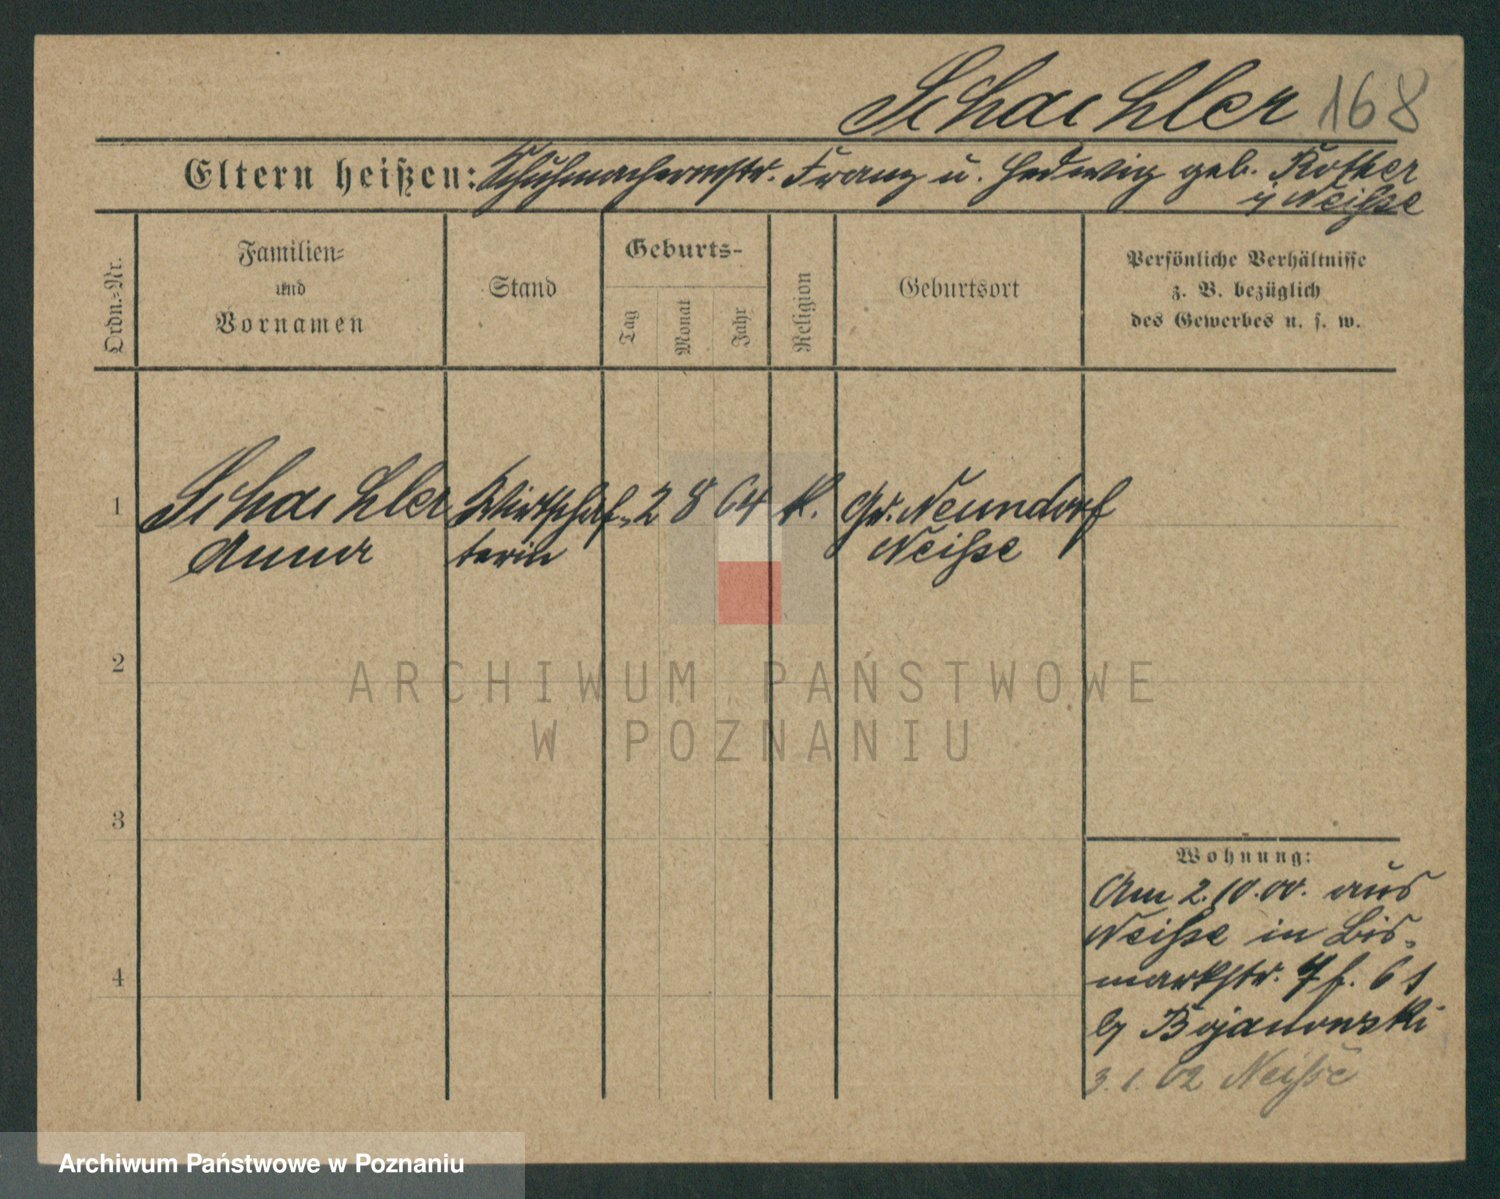 Schachler 168
Eltern heißen: Schuhmachermstr. Franz u. Hedwig geb. Rother
i/ Neiße
Ordn.-Nr.
Familien-
und
Vornamen
Stand
Geburts-
Tag
Monat
Jahr
Religion
Geburtsort
Persönliche Verhältnisse
z. B. bezüglich
des Gewerbes u. s. w.
1 Schachler Wirtschaf- 2 8 64 k. Gr. Neundorf
Anna terin Neiße
2
ARCHIWUM PAŃSTWOWE
W POZNANIU
3
Wohnung:
Am 2.10.00. aus
Neiße in Bis-
4
markstr.
b/ Bojanowski
3.1.02 Neiße
Archiwum Państwowe w Poznaniu